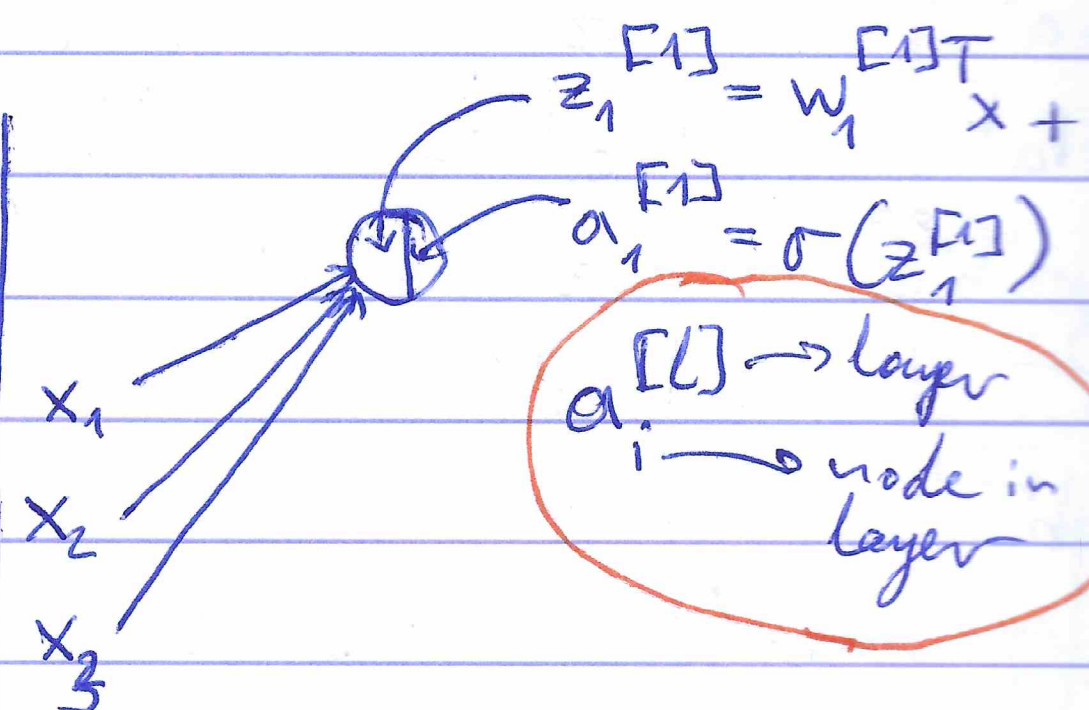 z₁^[1] = w₁^[1]T x +
a₁^[1] = σ(z₁^[1])
a_i^[l] → layer
i → node in
layer
x₁
x₂
x₃